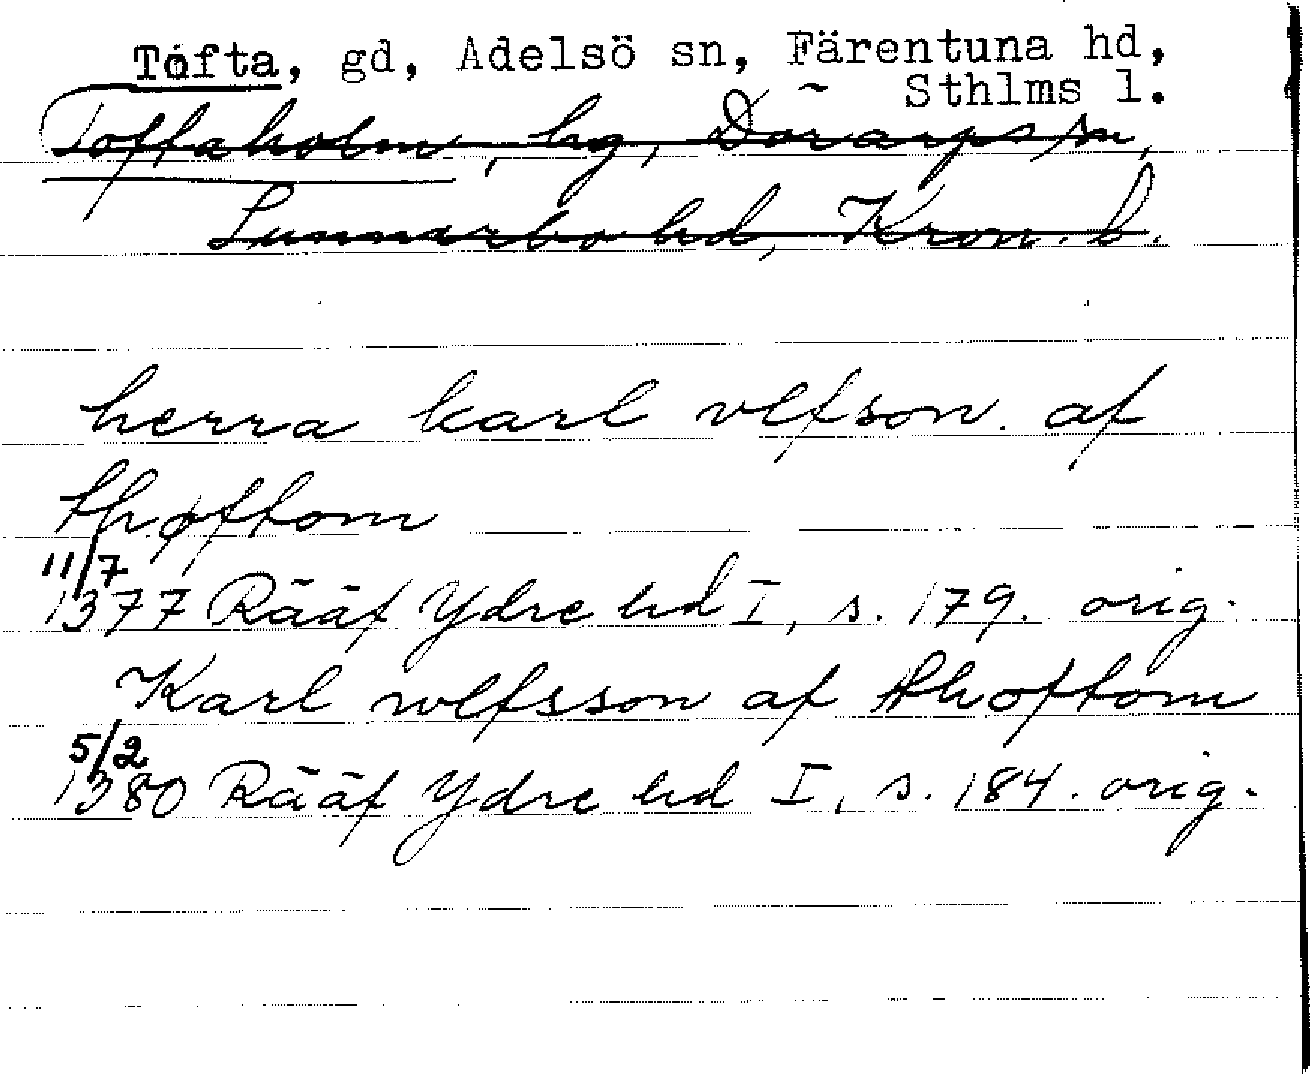 Tofta, gd, Adelsö sn, Färentuna hd,
Sthlms l.
Toftaholm, hg, Dorarps sn,
Sunnerbo hd, Kron. l.
herra karl vlfson. af
thøftom
11/7
1377 Rääf Ydre hd I, s. 179. orig.
Karl wlfsson af thoftom
5/2
1380 Rääf Ydre hd I, s. 184. orig.